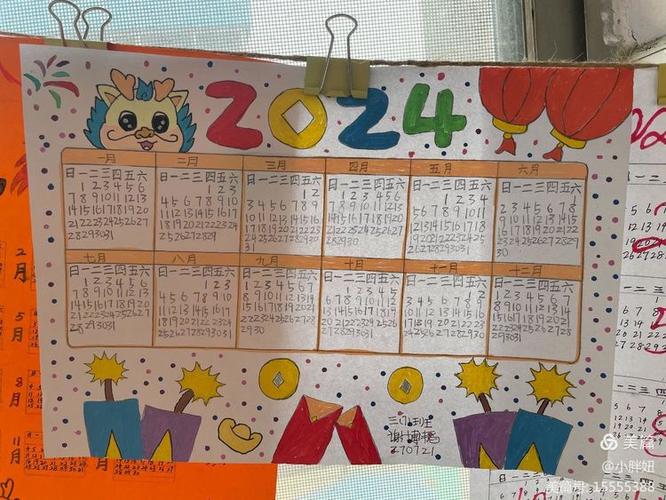 2024
一月
日一二三四五六
1 2 3 4 5 6
7 8 9 10 11 12 13
14 15 16 17 18 19 20
21 22 23 24 25 26 27
28 29 30 31
二月
日一二三四五六
1 2 3
4 5 6 7 8 9 10
11 12 13 14 15 16 17
18 19 20 21 22 23 24
25 26 27 28 29
三月
日一二三四五六
1 2
3 4 5 6 7 8 9
10 11 12 13 14 15 16
17 18 19 20 21 22 23
24 25 26 27 28 29 30
31
四月
日一二三四五六
1 2 3 4 5 6
7 8 9 10 11 12 13
14 15 16 17 18 19 20
21 22 23 24 25 26 27
28 29 30
五月
日一二三四五六
1 2 3 4
5 6 7 8 9 10 11
12 13 14 15 16 17 18
19 20 21 22 23 24 25
26 27 28 29 30 31
六月
日一二三四五六
1
2 3 4 5 6 7 8
9 10 11 12 13 14 15
16 17 18 19 20 21 22
23 24 25 26 27 28 29
30
七月
日一二三四五六
1 2 3 4 5 6
7 8 9 10 11 12 13
14 15 16 17 18 19 20
21 22 23 24 25 26 27
28 29 30 31
八月
日一二三四五六
1 2 3
4 5 6 7 8 9 10
11 12 13 14 15 16 17
18 19 20 21 22 23 24
25 26 27 28 29 30 31
九月
日一二三四五六
1 2 3 4 5 6 7
8 9 10 11 12 13 14
15 16 17 18 19 20 21
22 23 24 25 26 27 28
29 30
十月
日一二三四五六
1 2 3 4 5
6 7 8 9 10 11 12
13 14 15 16 17 18 19
20 21 22 23 24 25 26
27 28 29 30 31
十一月
日一二三四五六
1 2
3 4 5 6 7 8 9
10 11 12 13 14 15 16
17 18 19 20 21 22 23
24 25 26 27 28 29 30
十二月
日一二三四五六
1 2 3 4 5 6 7
8 9 10 11 12 13 14
15 16 17 18 19 20 21
22 23 24 25 26 27 28
29 30 31
270721
2月
5月
8月
11月
美篇
@小胖妞
美篇号: 15555388